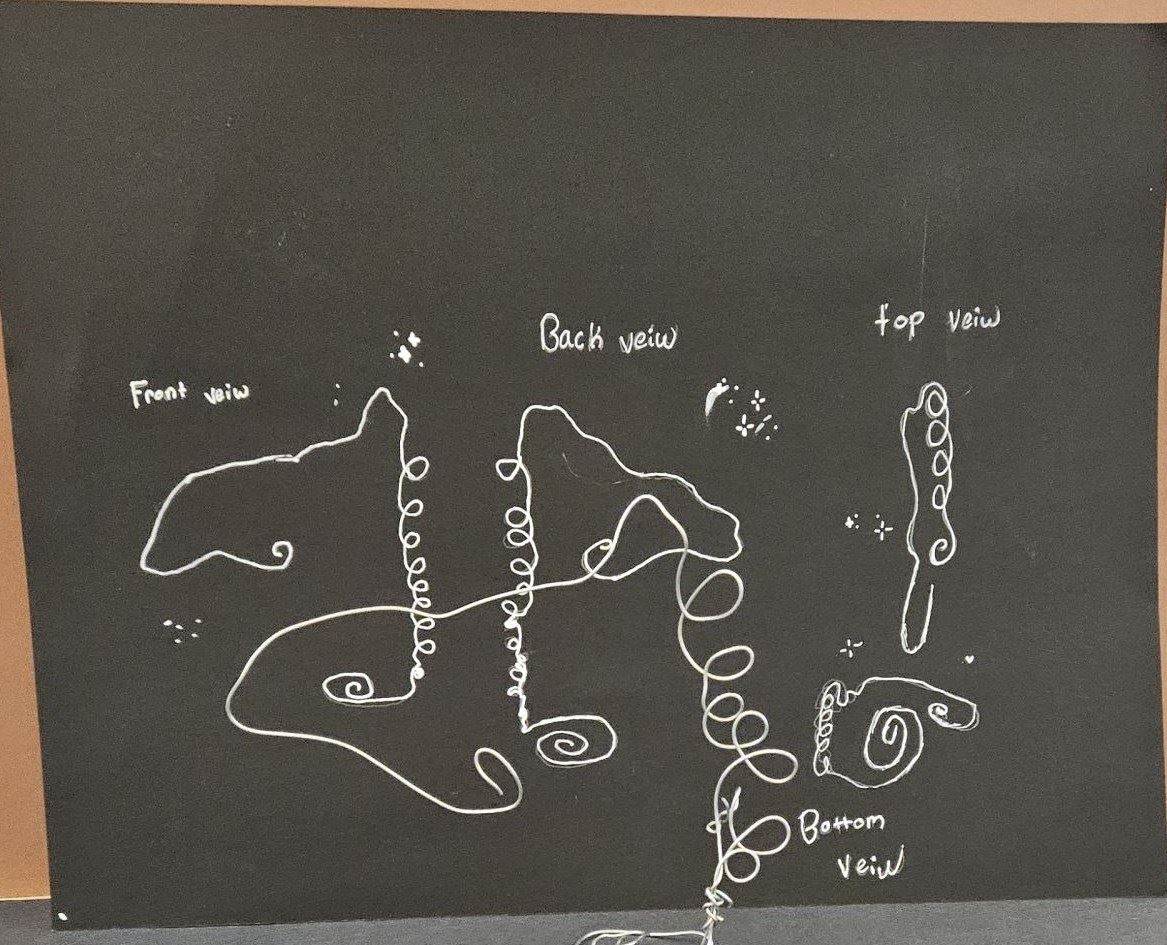 Front veiw
Back veiw
top veiw
Bottom
veiw